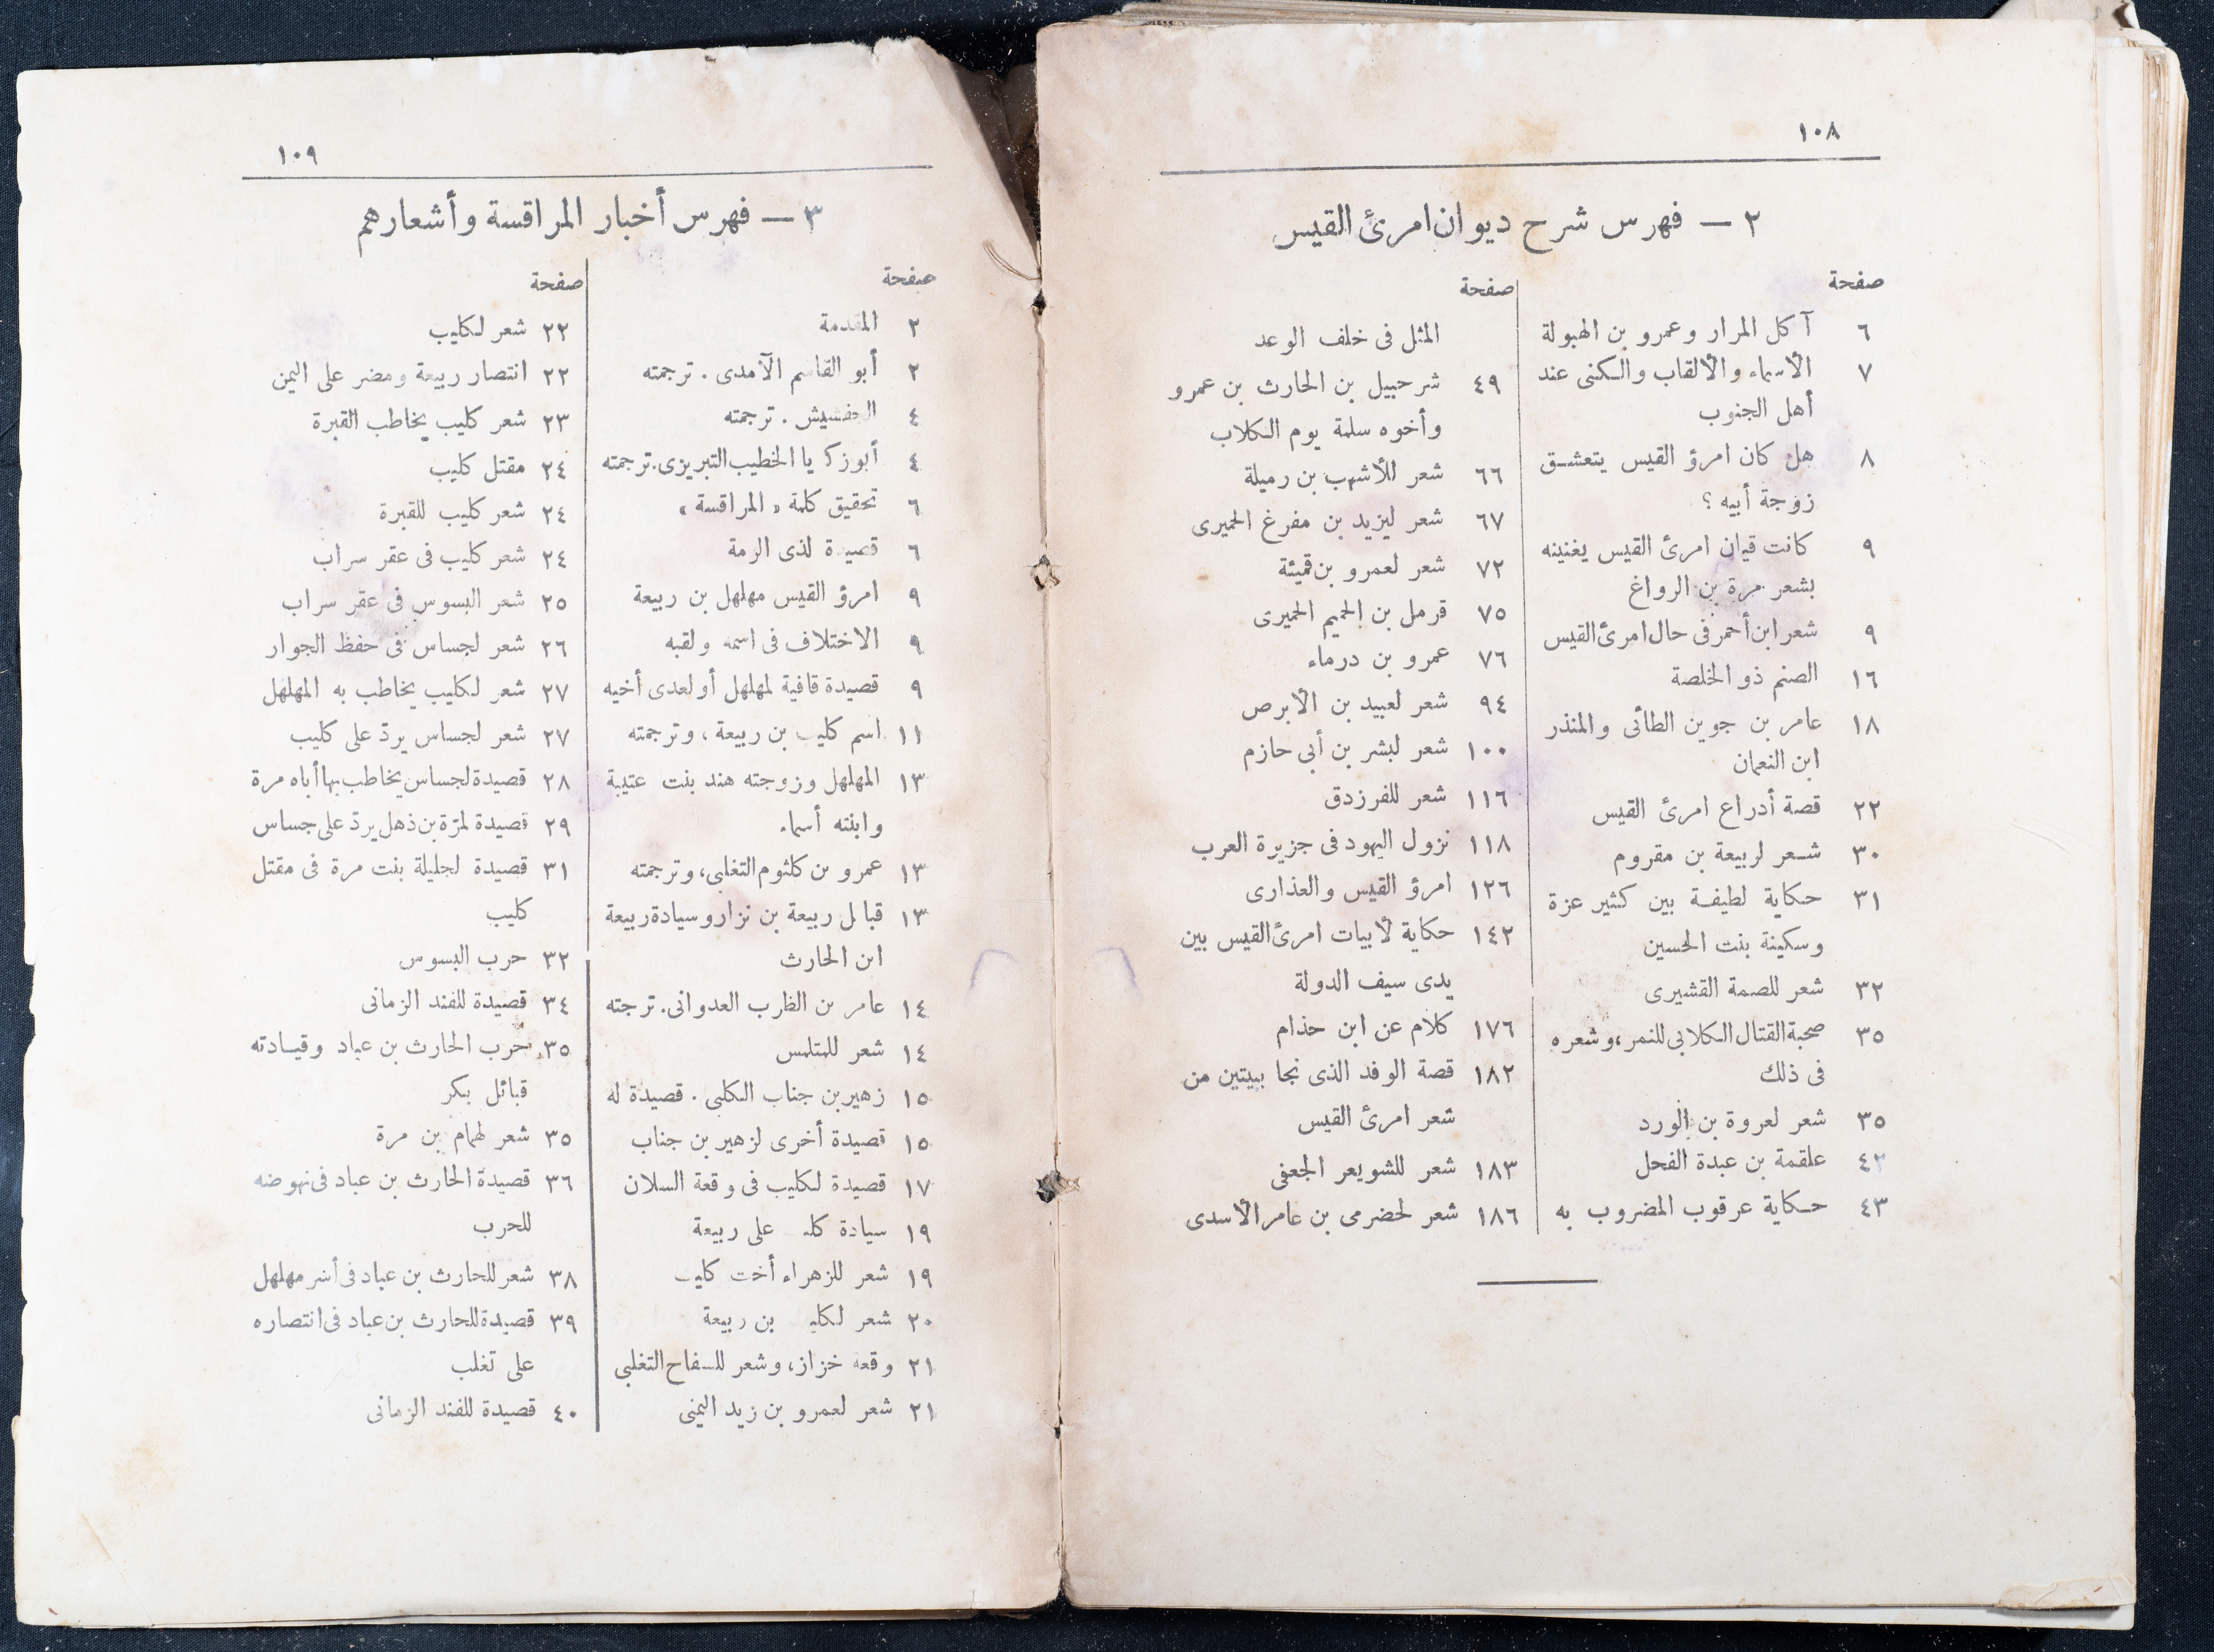 ١٠٨
٢ — فهرس شرح ديوان امرئ القيس
صفحة
٦ آكل المرار وعمرو بن الهبولة
٧ الأسماء والألقاب والكنى عند
أهل الجنوب
٨ هل كان امرؤ القيس يتعشق
زوجة أبيه ؟
٩ كانت قيان امرئ القيس يغنينه
بشعر مرة بن الرواغ
٩ شعر ابن أحمر فى حال امرئ القيس
١٦ الصنم ذو الخلصة
١٨ عامر بن جوين الطائى والمنذر
ابن النعمان
٢٢ قصة أدراع امرئ القيس
٣٠ شعر لربيعة بن مقروم
٣١ حكاية لطيفة بين كثير عزة
وسكينة بنت الحسين
٣٢ شعر للصمة القشيرى
٣٥ صحبة القتال الكلابى للنمر، وشعره
فى ذلك
٣٥ شعر لعروة بن الورد
٤٢ علقمة بن عبدة الفحل
٤٣ حكاية عرقوب المضروب به
صفحة
المثل فى خلف الوعد
٤٩ شرحبيل بن الحارث بن عمرو
وأخوه سلمة يوم الكلاب
٦٦ شعر للأشهب بن رميلة
٦٧ شعر ليزيد بن مفرغ الحميرى
٧٢ شعر لعمرو بن قميئة
٧٥ قرمل بن الحميم الحميرى
٧٦ عمرو بن درماء
٩٤ شعر لعبيد بن الأبرص
١٠٠ شعر لبشر بن أبى حازم
١١٦ شعر للفرزدق
١١٨ نزول اليهود فى جزيرة العرب
١٢٦ امرؤ القيس والعذارى
١٤٢ حكاية لأبيات امرئ القيس بين
يدى سيف الدولة
١٧٦ كلام عن ابن حذام
١٨٢ قصة الوفد الذى نجا ببيتين من
شعر امرئ القيس
١٨٣ شعر للشويعر الجعفى
١٨٦ شعر لحضرمى بن عامر الأسدى
١٠٩
٣ — فهرس أخبار المراقسة وأشعارهم
صفحة
٢ المقدمة
٢ أبو القاسم الآمدى . ترجمته
٤ الجفشيش . ترجمته
٤ أبو زكريا الخطيب التبريزى. ترجمته
٦ تحقيق كلمة « المراقسة »
٦ قصيدة لذى الرمة
٩ امرؤ القيس مهلهل بن ربيعة
٩ الاختلاف فى اسمه ولقبه
٩ قصيدة قافية لمهلهل أو لعدى أخيه
١١ اسم كليب بن ربيعة ، وترجمته
١٣ المهلهل وزوجته هند بنت عتيبة
وابنته أسماء
١٣ عمرو بن كلثوم التغلبى، وترجمته
١٣ قبائل ربيعة بن نزار وسيادة ربيعة
ابن الحارث
١٤ عامر بن الظرب العدوانى. ترجمته
١٤ شعر للمتلمس
١٥ زهير بن جناب الكلبى . قصيدة له
١٥ قصيدة أخرى لزهير بن جناب
١٧ قصيدة لكليب فى وقعة السلان
١٩ سيادة كليب على ربيعة
١٩ شعر للزهراء أخت كليب
٢٠ شعر لكليب بن ربيعة
٢١ وقعة خزاز، وشعر للسفاح التغلبى
٢١ شعر لعمرو بن زيد اليمنى
صفحة
٢٢ شعر لكليب
٢٢ انتصار ربيعة ومضر على اليمن
٢٣ شعر كليب يخاطب القبرة
٢٤ مقتل كليب
٢٤ شعر كليب للقبرة
٢٤ شعر كليب فى عقر سراب
٢٥ شعر البسوس فى عقر سراب
٢٦ شعر لجساس فى حفظ الجوار
٢٧ شعر لكليب يخاطب به المهلهل
٢٧ شعر لجساس يردّ على كليب
٢٨ قصيدة لجساس يخاطب بها أباه مرة
٢٩ قصيدة لمرّة بن ذهل يردّ على جساس
٣١ قصيدة لجليلة بنت مرة فى مقتل
كليب
٣٢ حرب البسوس
٣٤ قصيدة للفند الزمانى
٣٥ حرب الحارث بن عباد وقيادته
قبائل بكر
٣٥ شعر لهمام بن مرة
٣٦ قصيدة الحارث بن عباد فى نهوضه
للحرب
٣٨ شعر للحارث بن عباد فى أسر مهلهل
٣٩ قصيدة للحارث بن عباد فى انتصاره
على تغلب
٤٠ قصيدة للفند الزمانى